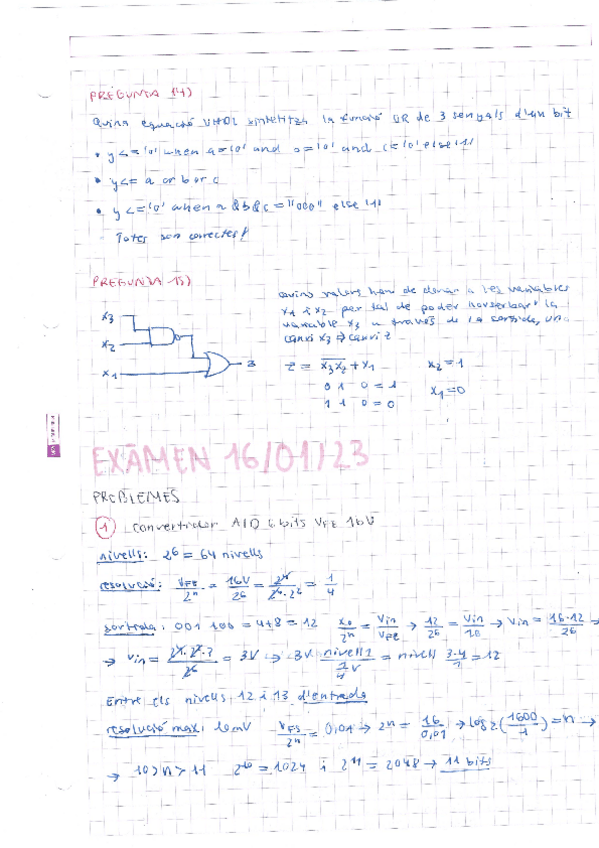 PREGUNTA 14)
Quina equació VHDL sintetitza la funció OR de 3 senyals d'un bit
• y <= '0' when a = '0' and b = '0' and c = '0' else '1'
• y <= a or b or c
• y <= '0' when a & b & c = "000" else '1'
Totes son correctes!
PREGUNTA 15)
Quins valors hem de donar a les variables
x1 i x2 per tal de poder la
variable x3 a través de la sortida, un
canvi x3 ⇒ canvi z
x3
x2
x1
z
z = x̅3̅x̅2̅ + x1
0 1 0 = 1
1 1 0 = 0
x2 = 1
x1 = 0
EXÀMEN 16/01/23
PROBLEMES
1 Convertidor A/D 6 bits VFE 16V
nivells: 2^6 = 64 nivells
resolució: VFE/2^n = 16V/2^6 = 2^4/2^4·2^2 = 1/4
sortida: 001 100 = 4+8 = 12 x0/2^n = Vin/VFE → 12/26 = Vin/16 → Vin = 16·12/26 →
→ Vin = = 3V → 3V nivell 1/ 1/4 V = nivell 3·4/1 = 12
Entre els nivells 12 i 13 d'entrada
resolució max: 10mV VFS/2^n = 0,01 → 2^n = 16/0,01 → log2(1600/1) = n →
→ 10 > n > 11 2^10 = 1024 i 2^11 = 2048 → 11 bits